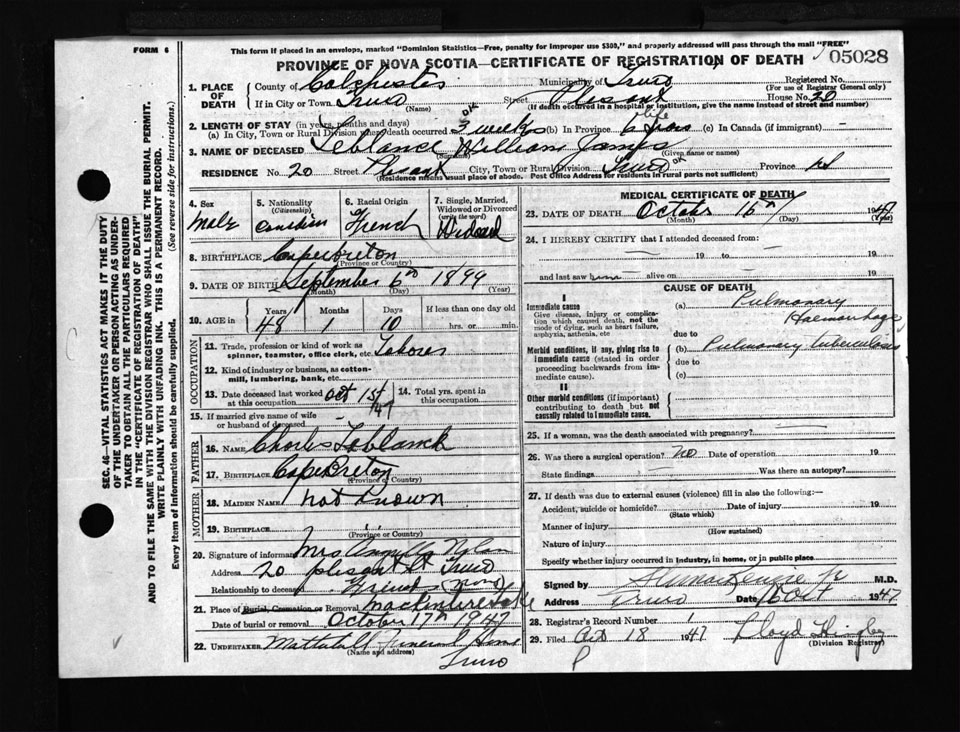 FORM 6
This form if placed in an envelope, marked "Dominion Statistics—Free, penalty for improper use $300," and properly addressed will pass through the mail "FREE"
05028
PROVINCE OF NOVA SCOTIA—CERTIFICATE OF REGISTRATION OF DEATH
1. PLACE OF DEATH
County of Colchester Municipality of Truro Registered No.
(For use of Registrar General only)
If in City or Town Truro Street Plesant House No. 20
(Name) (If death occurred in a hospital or institution, give the name instead of street and number)
2. LENGTH OF STAY (in years, months and days)
(a) In City, Town or Rural Division where death occurred 3 weeks (b) In Province life (c) In Canada (if immigrant) -
3. NAME OF DECEASED Leblance William James
(Surname) (Given name or names)
RESIDENCE No. 20 Street Plesant City, Town or Rural Division Truro Province NS
(Residence means usual place of abode. Post Office Address for residents in rural parts not sufficient)
4. Sex Male
5. Nationality (Citizenship) Canadian
6. Racial Origin French
7. Single, Married, Widowed or Divorced (write the word) Widowed
8. BIRTHPLACE Cape breton
(Province or Country)
9. DATE OF BIRTH September 6 1899
(Month) (Day) (Year)
10. AGE in Years Months Days If less than one day old
48 1 10 hrs. or min.
OCCUPATION
11. Trade, profession or kind of work as spinner, teamster, office clerk, etc. Laborer
12. Kind of industry or business, as cotton-mill, lumbering, bank, etc.
13. Date deceased last worked at this occupation Oct 1st/47
14. Total yrs. spent in this occupation.
15. If married give name of wife or husband of deceased -
FATHER
16. NAME Charles Leblance
17. BIRTHPLACE Cape Breton
(Province or Country)
MOTHER
18. MAIDEN NAME not known
19. BIRTHPLACE ,, ,,
(Province or Country)
20. Signature of informant Mrs Nolan
Address 20 plesant St Truro
Relationship to deceased Friend
21. Place of Burial, Cremation or Removal
Date of burial or removal October 17th 1947
22. UNDERTAKER Mattatall Funeral Home
(Name and address)
Truro
MEDICAL CERTIFICATE OF DEATH
23. DATE OF DEATH October 16th 1947
(Month) (Day) (Year)
24. I HEREBY CERTIFY that I attended deceased from:
— 19 to — 19
and last saw alive on — 19
CAUSE OF DEATH
I
Immediate cause
Give disease, injury or complication which caused death, not the mode of dying, such as heart failure, asphyxia, asthenia, etc
(a) Pulmonary Haemorrhage
due to
Morbid conditions, if any, giving rise to immediate cause (stated in order proceeding backwards from immediate cause).
(b) Pulmonary Tuberculosis
due to
(c)
II
Other morbid conditions (if important) contributing to death but not causally related to immediate cause.
25. If a woman, was the death associated with pregnancy? —
26. Was there a surgical operation? no Date of operation 19
State findings — Was there an autopsy?
27. If death was due to external causes (violence) fill in also the following:—
Accident, suicide or homicide? Date of injury 19
(State which)
Manner of injury
(How sustained)
Nature of injury
Specify whether injury occurred in industry, in home, or in public place
Signed by MacKenzie M.D.
Address Truro Date 16 Oct 1947
28. Registrar's Record Number 1
29. Filed Oct 18 1947 Lloyd
(Division Registrar)
SEC. 46—VITAL STATISTICS ACT MAKES IT THE DUTY
OF THE UNDERTAKER OR PERSON ACTING AS UNDERTAKER TO OBTAIN ALL THE PARTICULARS REQUIRED
IN THE "CERTIFICATE OF REGISTRATION OF DEATH"
AND TO FILE THE SAME WITH THE DIVISION REGISTRAR WHO SHALL ISSUE THE BURIAL PERMIT.
WRITE PLAINLY WITH UNFADING INK. THIS IS A PERMANENT RECORD.
Every item of information should be carefully supplied. (See reverse side for instructions.)